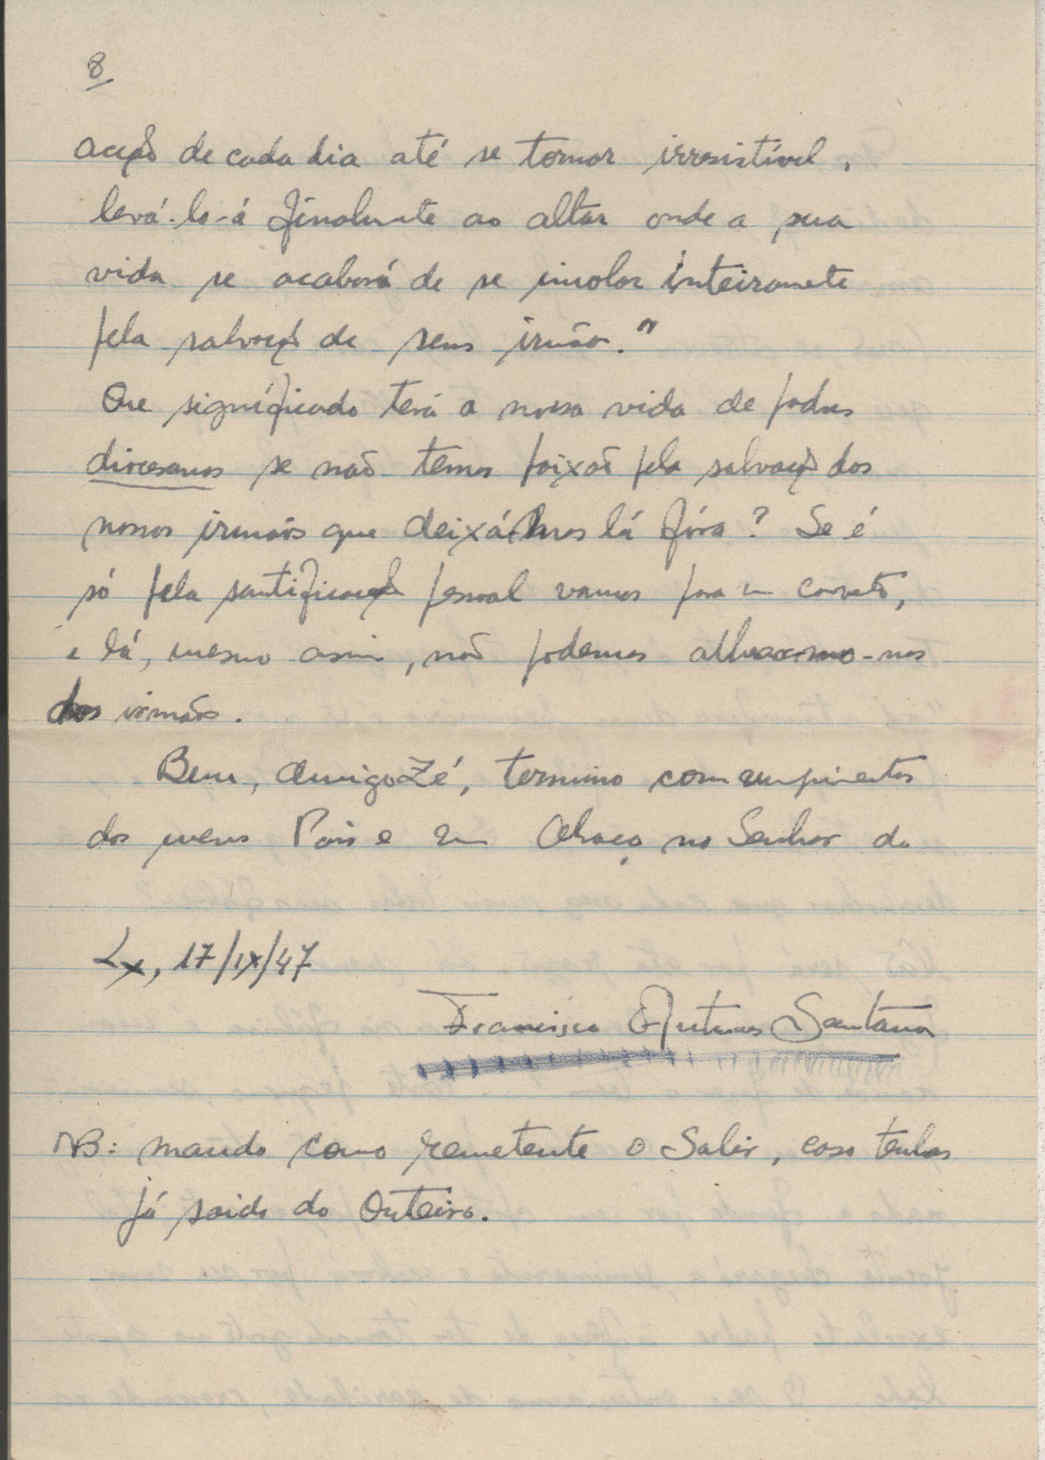 8
acção de cada dia até se tornar irresistível,
levá-lo-á finalmente ao altar onde a sua
vida se acabará de se imolar inteiramente
pela salvação de seus irmãos."
Que significado terá a nossa vida de padres
diocesanos se não temos paixão pela salvação dos
nossos irmãos que deixámos lá fóra? Se é
só pela santificação pessoal vamos para um convento,
e lá, mesmo assim, não podemos alhearmo-nos
dos irmãos.
Bem, amigo Zé, termino com cumprimentos
dos meus Pais e um abraço no Senhor do
Lx, 17/IX/47
Francisco Antunes Santana
NB: mando como remetente o Salir, caso tenhas
já saido do Outeiro.